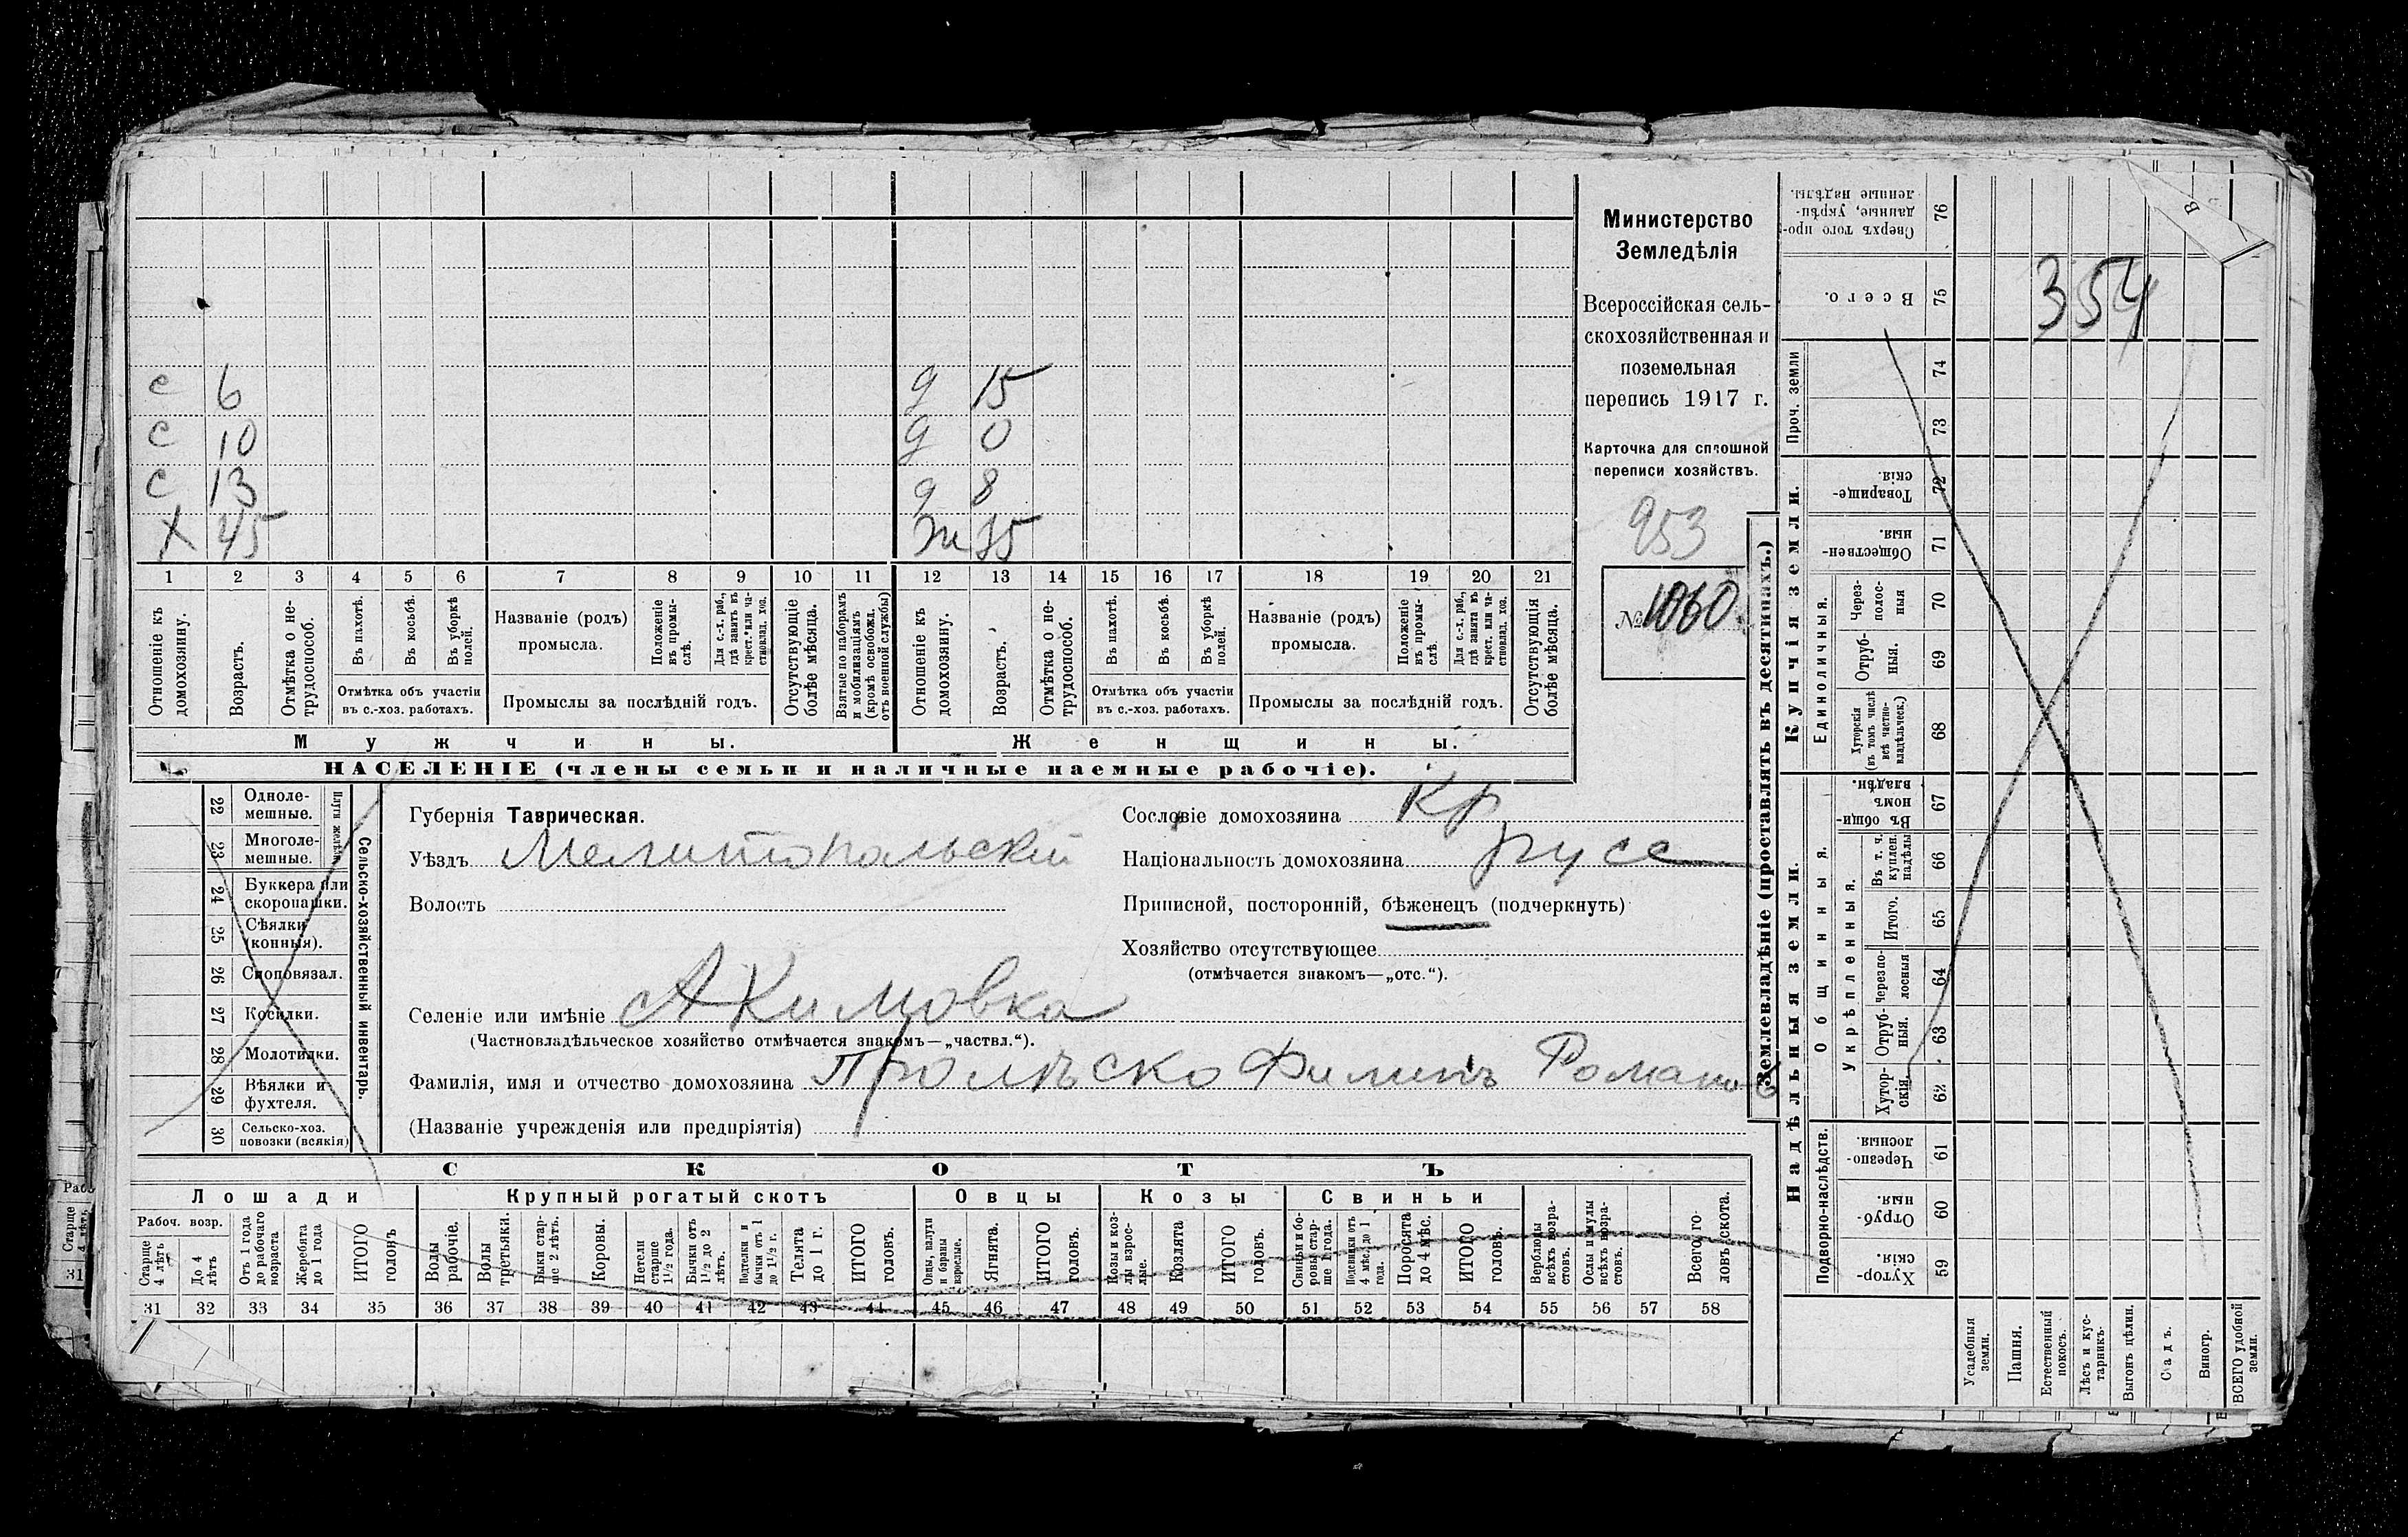 с 6 д 15
с 10 д 0
с 13 д 8
Х 45 ж 35
1 2 3 4 5 6 7 8 9 10 11 12 13 14 15 16 17 18 19 20 21
Отношеніе къ домохозяину.
Возрастъ.
Отмѣтка о не-
трудоспособ.
Въ пахотѣ.
Въ косьбѣ.
Въ уборкѣ полей.
Отмѣтка объ участіи
въ с.-хоз. работахъ.
Названіе (родъ)
промысла.
Положеніе въ промы-
слѣ.
Для с.-х. раб., гдѣ занятъ въ крест. или ча-
стновлад. хоз.
Промыслы за послѣдній годъ.
Отсутствующіе болѣе мѣсяца.
Взятые по наборамъ и мобилизаціямъ (кромѣ освобожд. отъ военной службы)
Отношеніе къ домохозяину.
Возрастъ.
Отмѣтка о не-
трудоспособ.
Въ пахотѣ.
Въ косьбѣ.
Въ уборкѣ полей.
Отмѣтка объ участіи
въ с.-хоз. работахъ.
Названіе (родъ)
промысла.
Положеніе въ промы-
слѣ.
Для с.-х. раб., гдѣ занята въ крест. или ча-
стновлад. хоз.
Промыслы за послѣдній годъ.
Отсутствующія болѣе мѣсяца.
Мужчины. Женщины.
НАСЕЛЕНІЕ (члены семьи и наличные наемные рабочіе).
Министерство
Земледѣлія
Всероссійская сель-
скохозяйственная и
поземельная
перепись 1917 г.
Карточка для сплошной
переписи хозяйствъ.
953
№ 1060
22 Одноле-
мешные.
23 Многоле-
мешные.
Плуги желѣзн.
24 Буккера или
скоропашки.
25 Сѣялки
(конныя).
26 Сноповязал.
27 Косилки.
28 Молотилки.
29 Вѣялки и
фухтеля.
30 Сельско-хоз.
повозки (всякія)
Сельско-хозяйственный инвентарь.
Губернія Таврическая.
Уѣздъ Мелитопольскій
Волость
Сословіе домохозяина Кр
Національность домохозяина русс
Приписной, посторонній, бѣженецъ (подчеркнуть)
Хозяйство отсутствующее
(отмѣчается знакомъ—„отс.“).
Селеніе или имѣніе Акимовка
(Частновладѣльческое хозяйство отмѣчается знакомъ—„частвл.“).
Фамилія, имя и отчество домохозяина Пролѣско Филипъ Романов
(Названіе учрежденія или предпріятія)
СКОТЪ
Лошади Крупный рогатый скотъ Овцы Козы Свиньи
Рабоч. возр.
Старше 4 лѣтъ
До 4 лѣтъ
Отъ 1 года до рабочаго возраста
Жеребята до 1 года
ИТОГО головъ
Волы рабочіе.
Волы третьяки.
Быки стар-
ше 2 лѣтъ.
Коровы.
Нетели старше 1½ года.
Бычки отъ 1½ до 2 лѣтъ.
Подтелки и бычки отъ 1 до 1½ г.
Телята до 1 г.
ИТОГО головъ.
Овцы, валухи и бараны взрослые.
Ягнята.
ИТОГО головъ.
Козы и коз-
лы взрос-
лые.
Козлята
ИТОГО головъ.
Свиньи и бо-
ровы стар-
ше 1 года.
Подсвинки отъ 4 мѣс. до 1 года.
Поросята до 4 мѣс.
ИТОГО головъ.
Верблюды всѣхъ возра-
стовъ.
Ослы и мулы всѣхъ возра-
стовъ.
Всего го-
ловъ скота.
31 32 33 34 35 36 37 38 39 40 41 42 43 44 45 46 47 48 49 50 51 52 53 54 55 56 57 58
Землевладѣніе (проставлять въ десятинахъ.)
Купчія земли.
Надѣльныя земли.
Сверхъ того про-
данные, укрѣп-
ленные надѣлы. 76
Всего. 75
354
Проч. земли 74
73
Товарище-
скія. 72
Обществен-
ныя. 71
Единоличныя.
Через-
полос-
ныя 70
Отруб-
ныя. 69
Хуторскія (въ томъ числѣ всѣ частно-
владѣльческ.) 68
Общинныя.
Въ общи-
номъ владѣн. 67
Укрѣпленныя.
Въ т. ч. куплен. надѣлы 66
Итого. 65
Черезпо-
лосныя 64
Отруб-
ныя. 63
Хутор-
скія. 62
Подворно-наслѣдств.
Черезпо-
лосныя. 61
Отруб-
ныя. 60
Хутор-
скія. 59
Усадебныя земли.
Пашня.
Естественный покосъ.
Лѣсъ и кус-
тарникъ.
Выгонъ цѣлин.
Садъ.
Виногр.
ВСЕГО удобной земли.
Старше
31